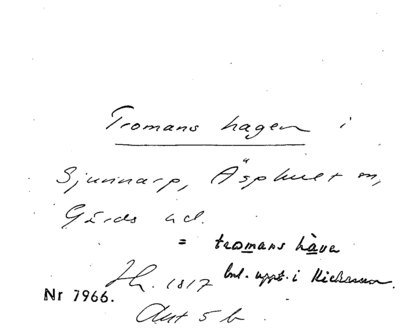 Tromans hagen i
Sjunnarp, Äsphult sn,
Gärds hd.
= tromans hava
Jh. 1817 enl. uppt. i
Nr 7966.
Akt 5 b